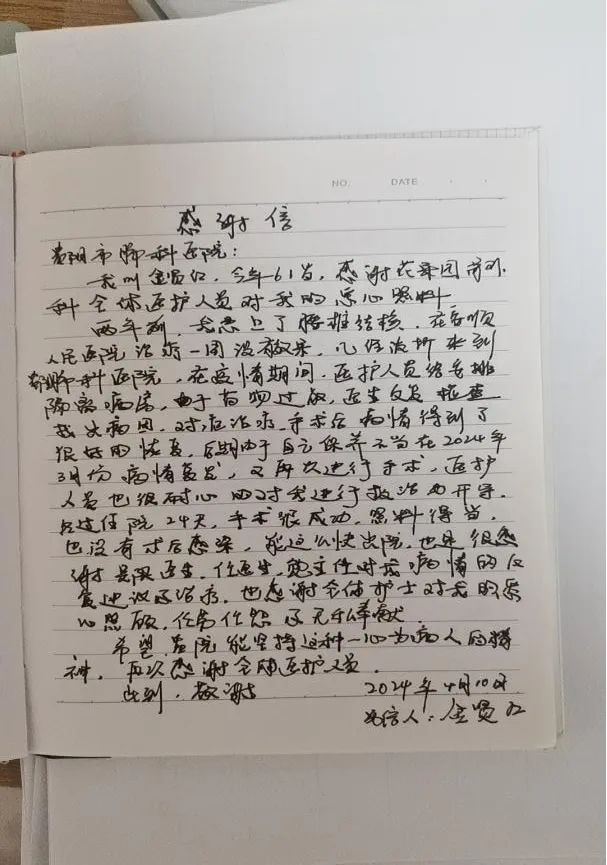 NO. DATE
感谢信
贵阳市肺科医院：
我叫金贤红，今年61岁，感谢花果园骨外
科全体医护人员对我的悉心照料
两年前，我患上了腰椎结核，在安顺
人民医院治疗一周没效果，几经波折来到
贵阳市肺科医院，在疫情期间，医护人员给安排
隔离病房，由于药物过敏，医生反复检查
找出病因，对症治疗，手术后病情得到了
很好的恢复，后期由于自己保养不当在2024年
3月份病情复发，又再次进行手术，医护
人员也很耐心的对我进行救治和开导，
经过住院24天，手术很成功，照料得当，
也没有术后感染，能这么快出院，也是很感
谢 医生，任医生，鲍主任对我病情的反
复建议及治疗，也感谢全体护士对我的悉
心照顾，任劳任怨及无私奉献
希望贵院能坚持这种一心为病人的精
神，再次感谢全体医护人员．
此到，敬谢 2024年4月10日
写信人：金贤红